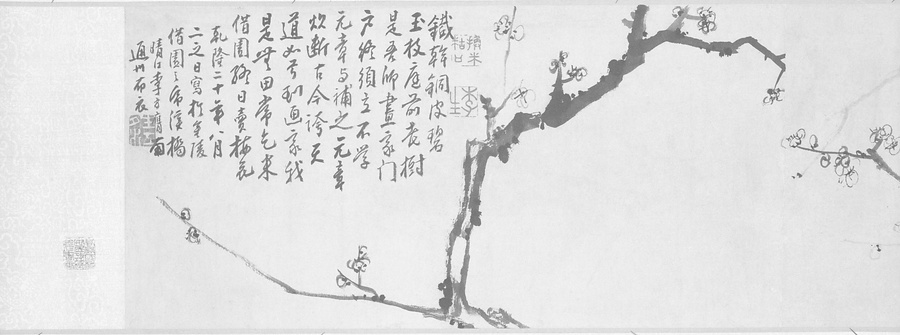 鐵幹銅皮碧
玉枝庭前老樹
是吾師畫家門
戶終須立不學
元章与補之元章
炊斷古今誇天
道如弓到画家我
是無田常乞米
借園終日賣梅花
乾隆二十年八月
二之日寫於金陵
借園之虎溪橋
晴江李方膺
通州布衣